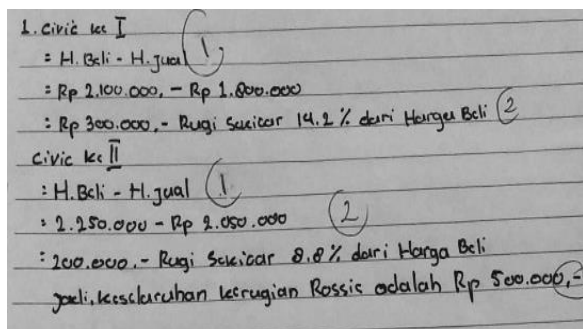 1. Civic ke I
= H. Beli - H. Jual 1
= Rp 2.100.000,- Rp 1.800.000
= Rp 300.000,- Rugi Sekitar 14.2 % dari Harga Beli 2
Civic ke II
= H. Beli - H. Jual 1
= 2.250.000 - Rp 2.050.000 2
= 200.000.- Rugi Sekitar 8.8 % dari Harga Beli
Jadi, Keseluruhan kerugian Rossie adalah Rp 500.000,-